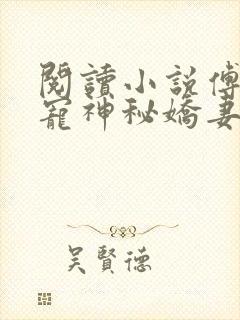 閱讀小説傅
寵神秘嬌妻
吳賢德